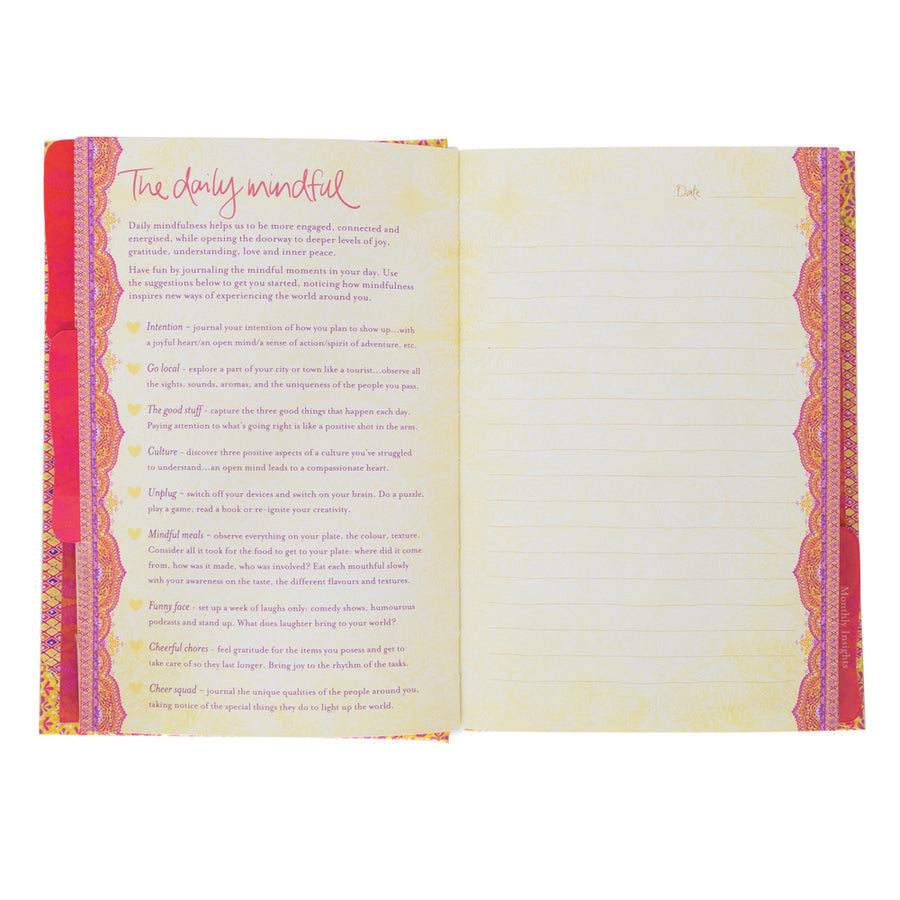 The daily mindful
Daily mindfulness helps us to be more engaged, connected and
energised, while opening the doorway to deeper levels of joy,
gratitude, understanding, love and inner peace.
Have fun by journaling the mindful moments in your day. Use
the suggestions below to get you started, noticing how mindfulness
inspires new ways of experiencing the world around you.
Intention – journal your intention of how you plan to show up...with
a joyful heart/an open mind/a sense of action/spirit of adventure, etc.
Go local - explore a part of your city or town like a tourist...observe all
the sights, sounds, aromas, and the uniqueness of the people you pass.
The good stuff - capture the three good things that happen each day.
Paying attention to what's going right is like a positive shot in the arm.
Culture - discover three positive aspects of a culture you've struggled
to understand...an open mind leads to a compassionate heart.
Unplug – switch off your devices and switch on your brain. Do a puzzle,
play a game, read a book or re-ignite your creativity.
Mindful meals – observe everything on your plate, the colour, texture.
Consider all it took for the food to get to your plate: where did it come
from, how was it made, who was involved? Eat each mouthful slowly
with your awareness on the taste, the different flavours and textures.
Funny face - set up a week of laughs only: comedy shows, humourous
podcasts and stand up. What does laughter bring to your world?
Cheerful chores - feel gratitude for the items you posess and get to
take care of so they last longer. Bring joy to the rhythm of the tasks.
Cheer squad – journal the unique qualities of the people around you,
taking notice of the special things they do to light up the world.
Date
Monthly Insights